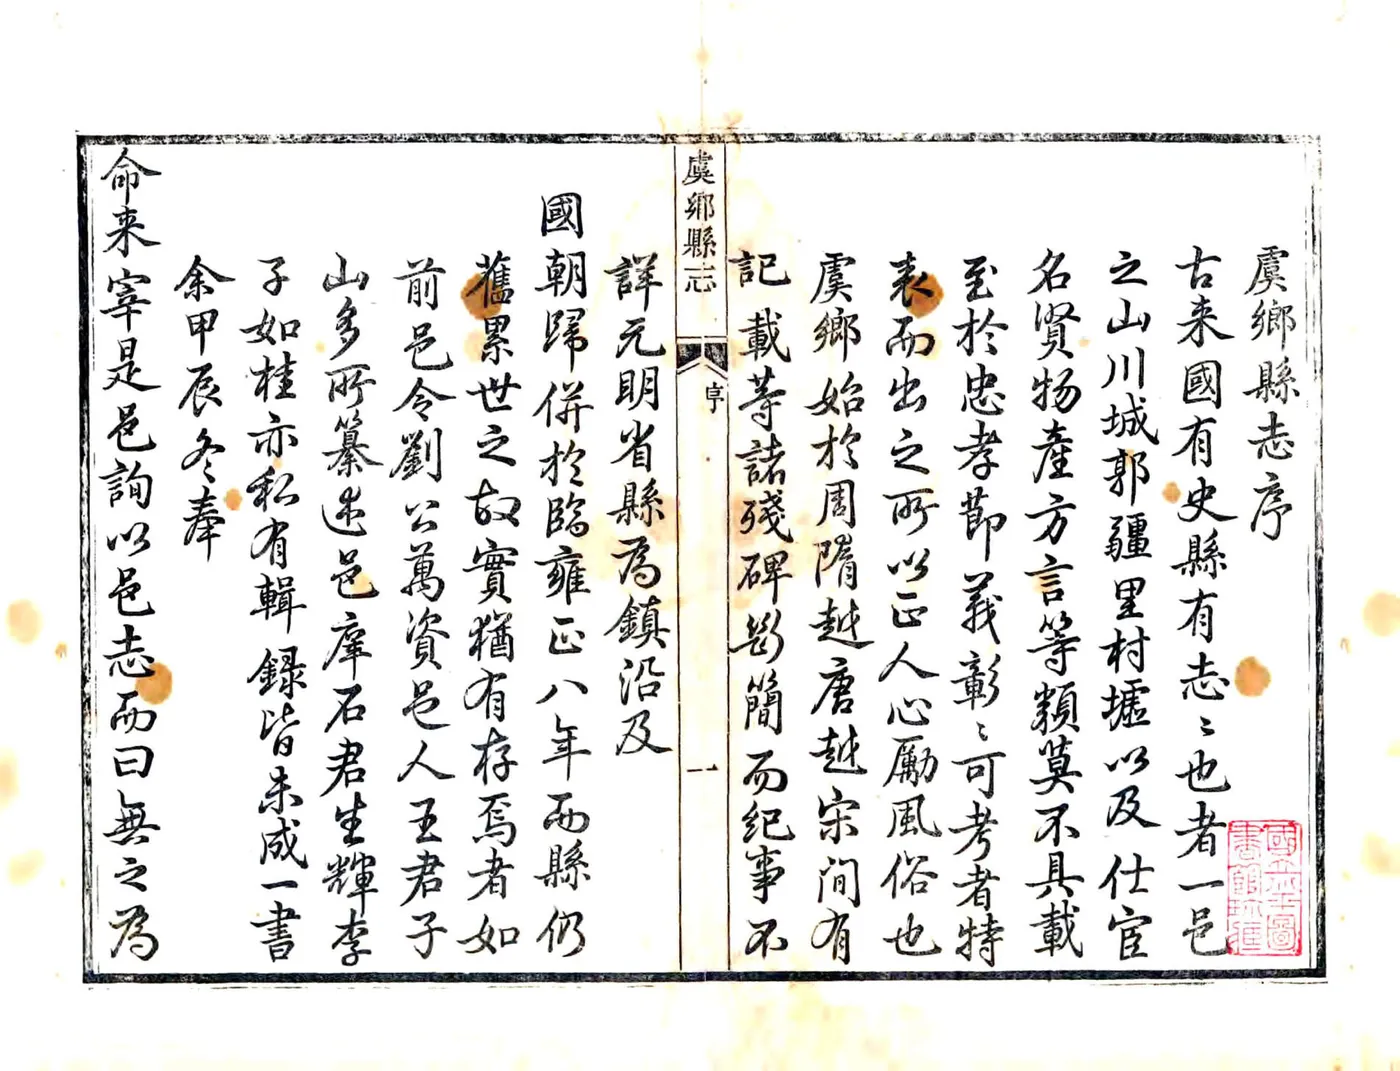 虞鄉縣志序
古来國有史縣有志〻也者一邑
之山川城郭疆里村墟以及仕宦
名賢物產方言等類莫不具載
至於忠孝節義彰〻可考者特
表而出之所以正人心勵風俗也
虞鄉始於周隋越唐越宋间有
記載等諸殘碑斷簡而紀事不
虞鄉縣志
序
一
詳元明省縣為鎮沿及
國朝歸併於臨雍正八年西縣仍
舊累世之故實猶有存焉者如
前邑令劉公萬資邑人王君子
山多所纂述邑庠石君生輝李
子如桂亦私有輯録皆未成一書
余甲辰冬奉
命来宰是邑詢以邑志而曰無之為
國立北平圖
書館珎藏